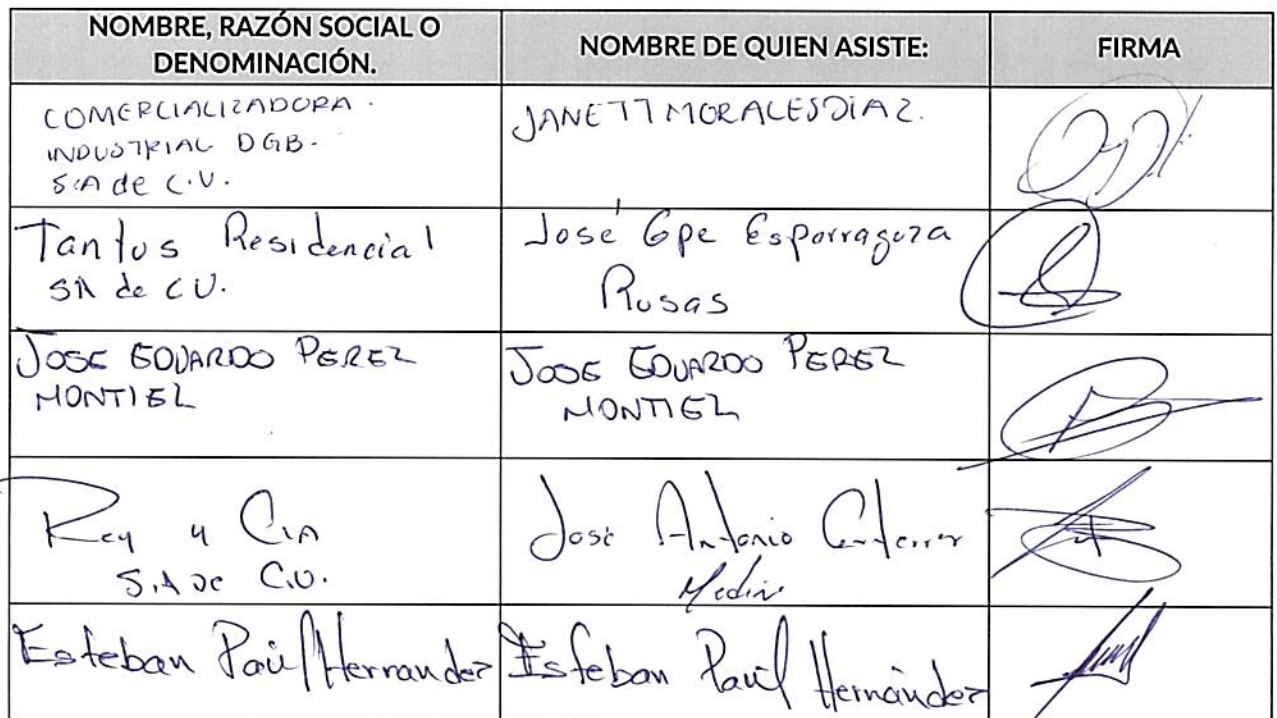 NOMBRE, RAZÓN SOCIAL O
DENOMINACIÓN.
NOMBRE DE QUIEN ASISTE:
FIRMA
COMERCIALIZADORA.
INDUSTRIAL DGB.
S.A de C.V.
JANETT MORALES DIAZ.
Tantus Residencial
SA de CV.
José Gpe Esparragoza
Rosas
JOSE EDUARDO PEREZ
MONTIEL
JOSE EDUARDO PEREZ
MONTIEL
Rey y Cia
S.A DE C.V.
José Antonio Gutierrez
Medina
Esteban Paúl Hernandez
Esteban Paúl Hernández